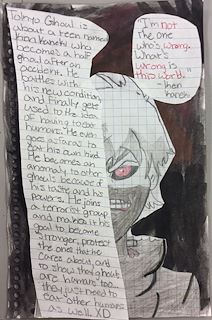 Tokyo Ghoul is
about a teen named
Kaneki who
becomes a half
ghoul after an
accident. He
battles with
his new condition
and finally gets
used to the idea
of having to eat
humans. He even
for his own food.
He becomes an
anomaly to other
ghouls because of
his taste and his
powers. He joins
a terrorist group
and makes it his
goal to become
stronger, protect
the ones that he
cares about, and
to show that ghouls
are humans too
they just need to
eat other humans
as well. XD
"I'm not
the one
who's wrong.
What's
wrong is
this world."
- Ken
Kaneki